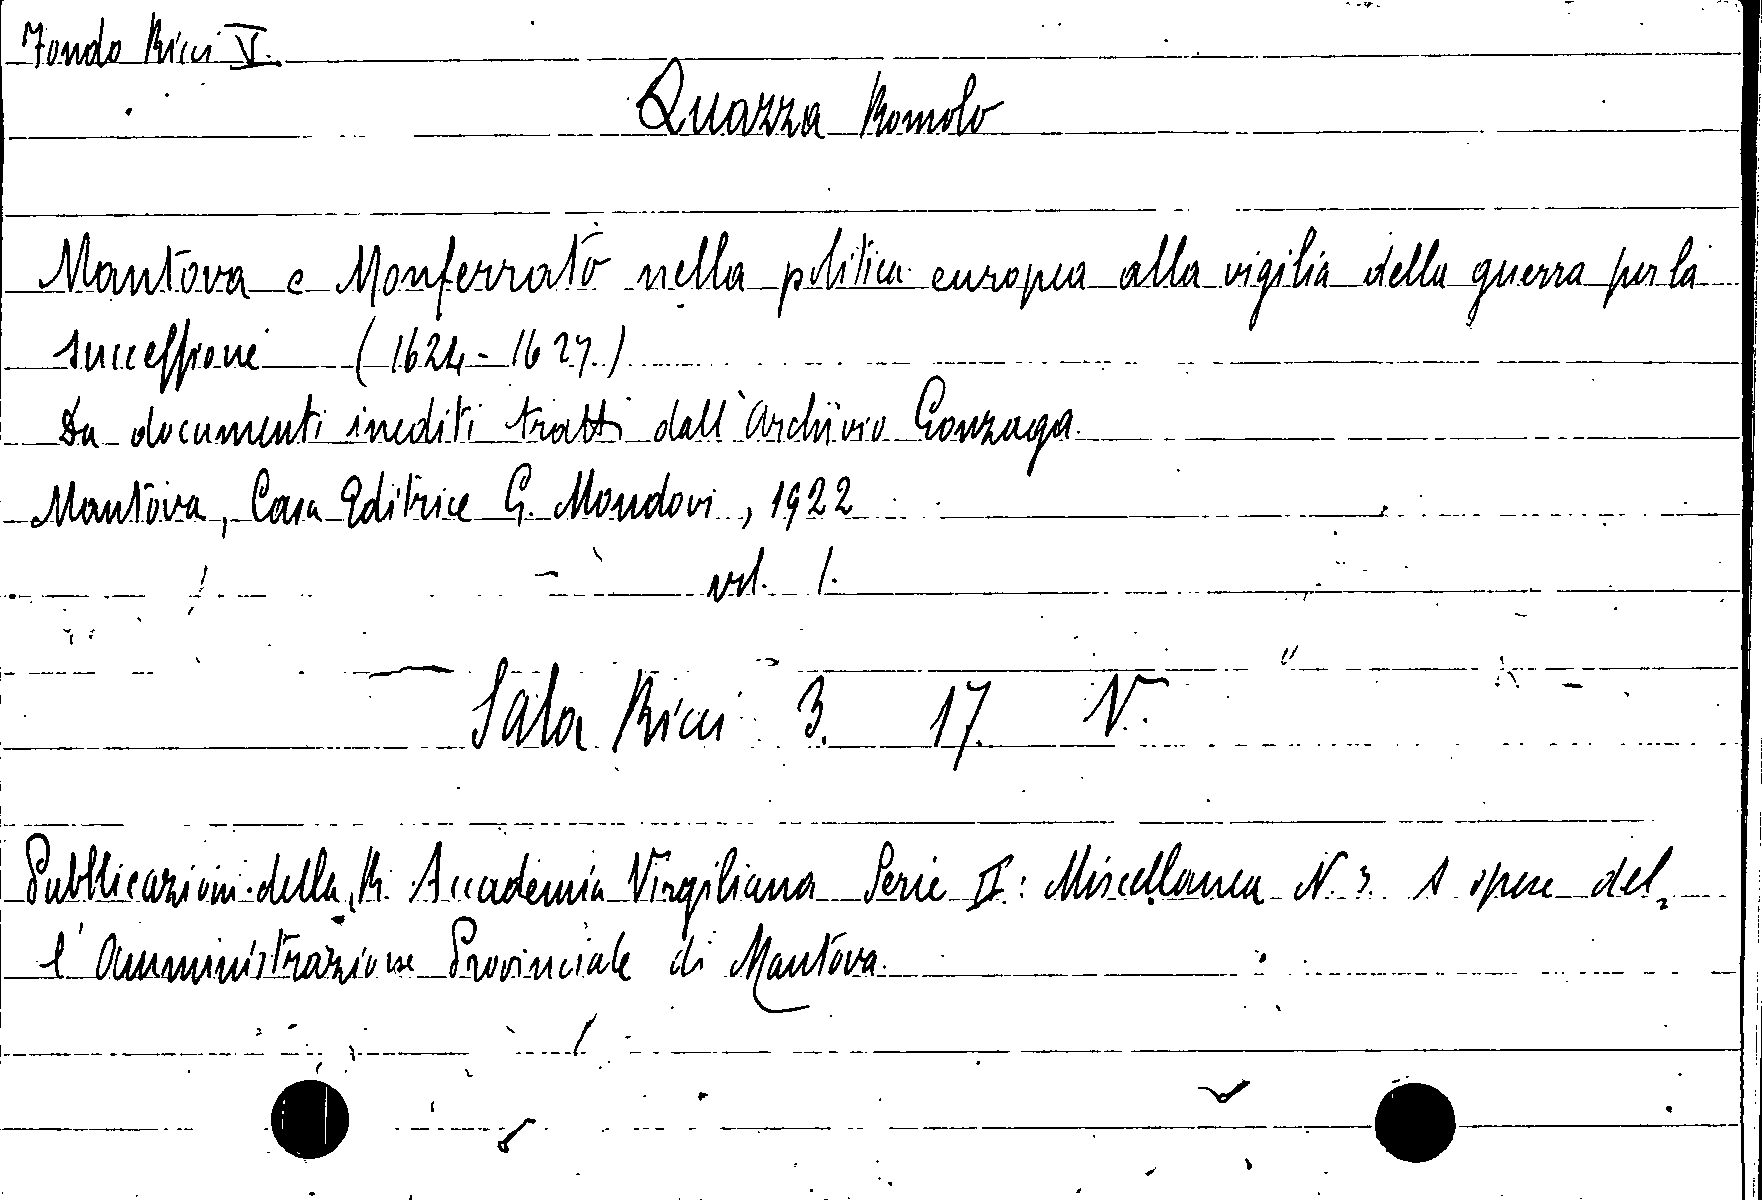 Fondo Ricci V.
Quazza Romolo
Mantova e Monferrato nella politica europea alla vigilia della guerra per la
successione (1624-1627)
Da documenti inediti tratti dall'Archivio Gonzaga.
Mantova, Casa Editrice G. Mondovi, 1922
vol. 1.
Sala Ricci 3. 17. V.
Pubblicazioni della R. Accademia Virgiliana Serie II: Miscellanea N. 3. A spese del,
l'Amministrazione Provinciale di Mantova.